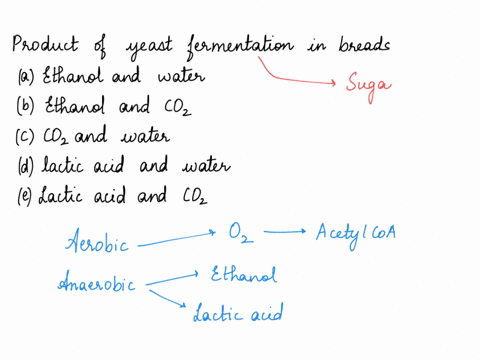 Product of yeast fermentation in breads
Suga
(a) Ethanol and water
(b) Ethanol and CO2
(c) CO2 and water
(d) lactic acid and water
(e) Lactic acid and CO2
Aerobic O2 Acetyl CoA
Anaerobic Ethanol
Lactic acid